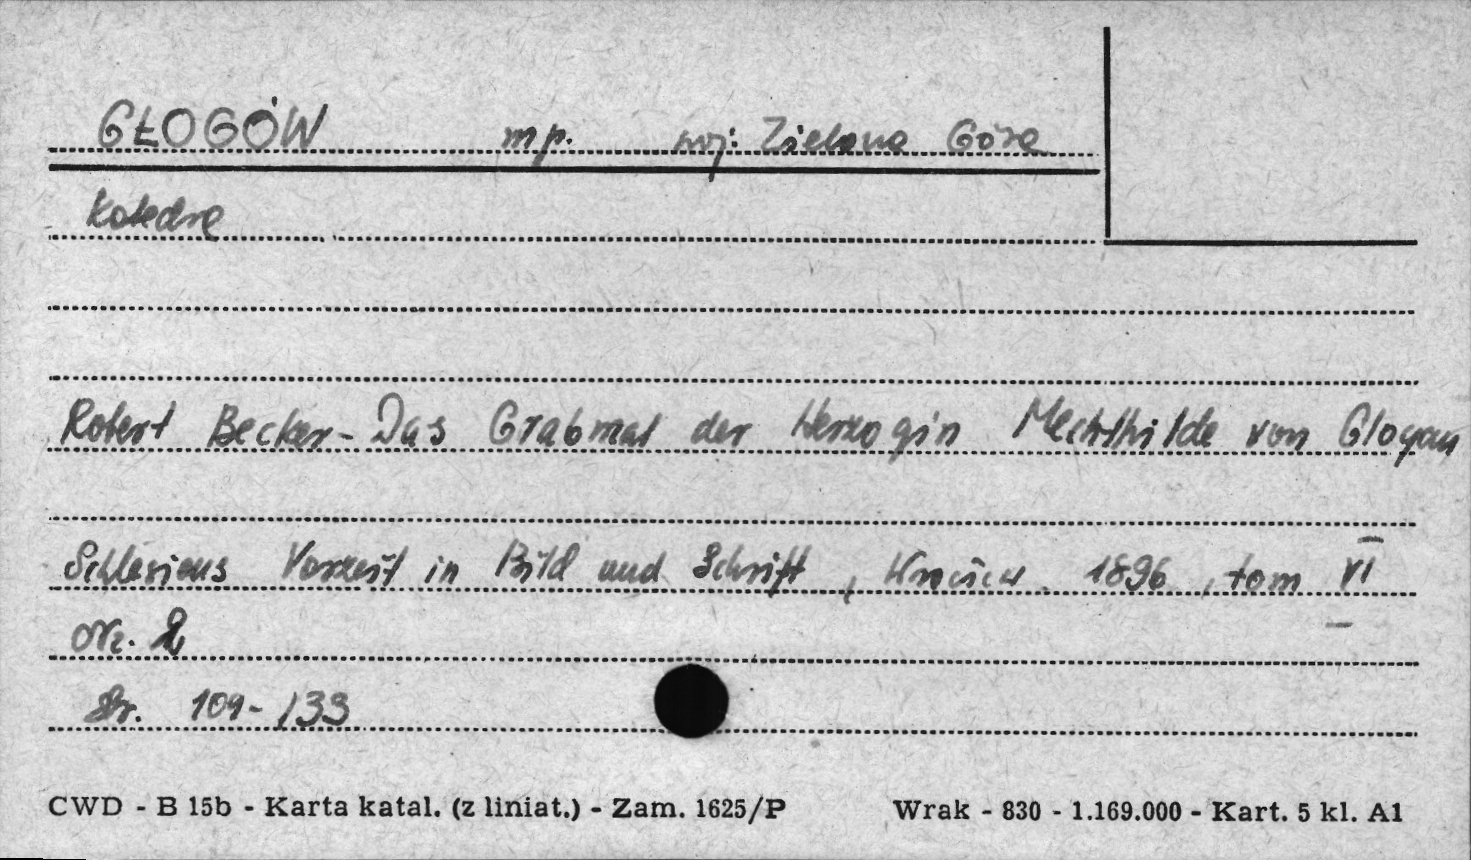 GŁOGÓW mp. woj: Zielona Góra
Katedra
Robert Becker - Das Grabmal der Herzogin Mechthilde von Glogau
Schlesiens Vorzeit in Bild und Schrift, Wrocław 1896, tom VI
nr. 2
str. 109-133
CWD - B 15b - Karta katal. (z liniat.) - Zam. 1625/P Wrak - 830 - 1.169.000 - Kart. 5 kl. A1